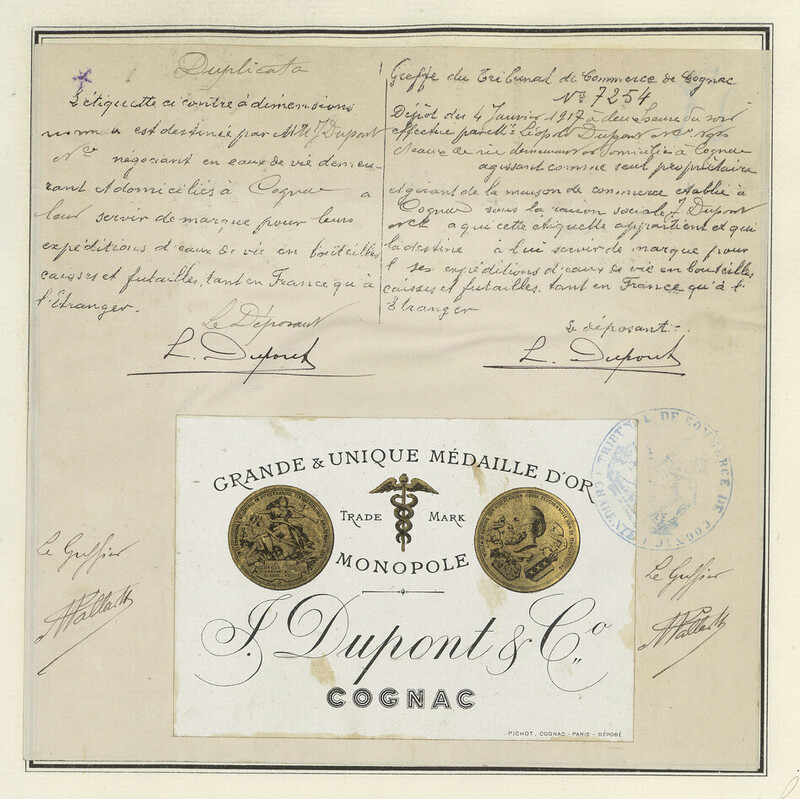 Duplicata
L'étiquette ci contre à dimensions
est destiné par MM J Dupont
négociant en eaux de vie demeu-
rant et domiciliés à Cognac a
leur servir de marque pour leurs
expéditions d'eaux de vie en bouteilles
caisses et futailles, tant en France qu'à
l'Étranger.
Le Déposant
L. Dupont
Greffe du Tribunal de Commerce de Cognac
No 7254
Dépôt du 4 Janvier 1917 à deux heures du soir
effectué par Mr Léopold Dupont
d'eaux de vie demeurant et domicilié à Cognac
agissant comme seul propriétaire
et gérant de la maison de commerce établie à
Cognac sous la raison sociale J Dupont
a qui cette étiquette appartient et qui
la destine à lui servir de marque pour
ses expéditions d'eaux de vie en bouteilles,
caisses et futailles. tant en France qu'à l'
Étranger
Le déposant :
L. Dupont
GRANDE & UNIQUE MÉDAILLE D'OR
TRADE MARK
MONOPOLE
J. Dupont & Co
COGNAC
PICHOT, COGNAC - PARIS - DÉPOSÉ
TRIBUNAL DE COMMERCE DE COGNAC
CHARENTE
Le Greffier
Le Greffier